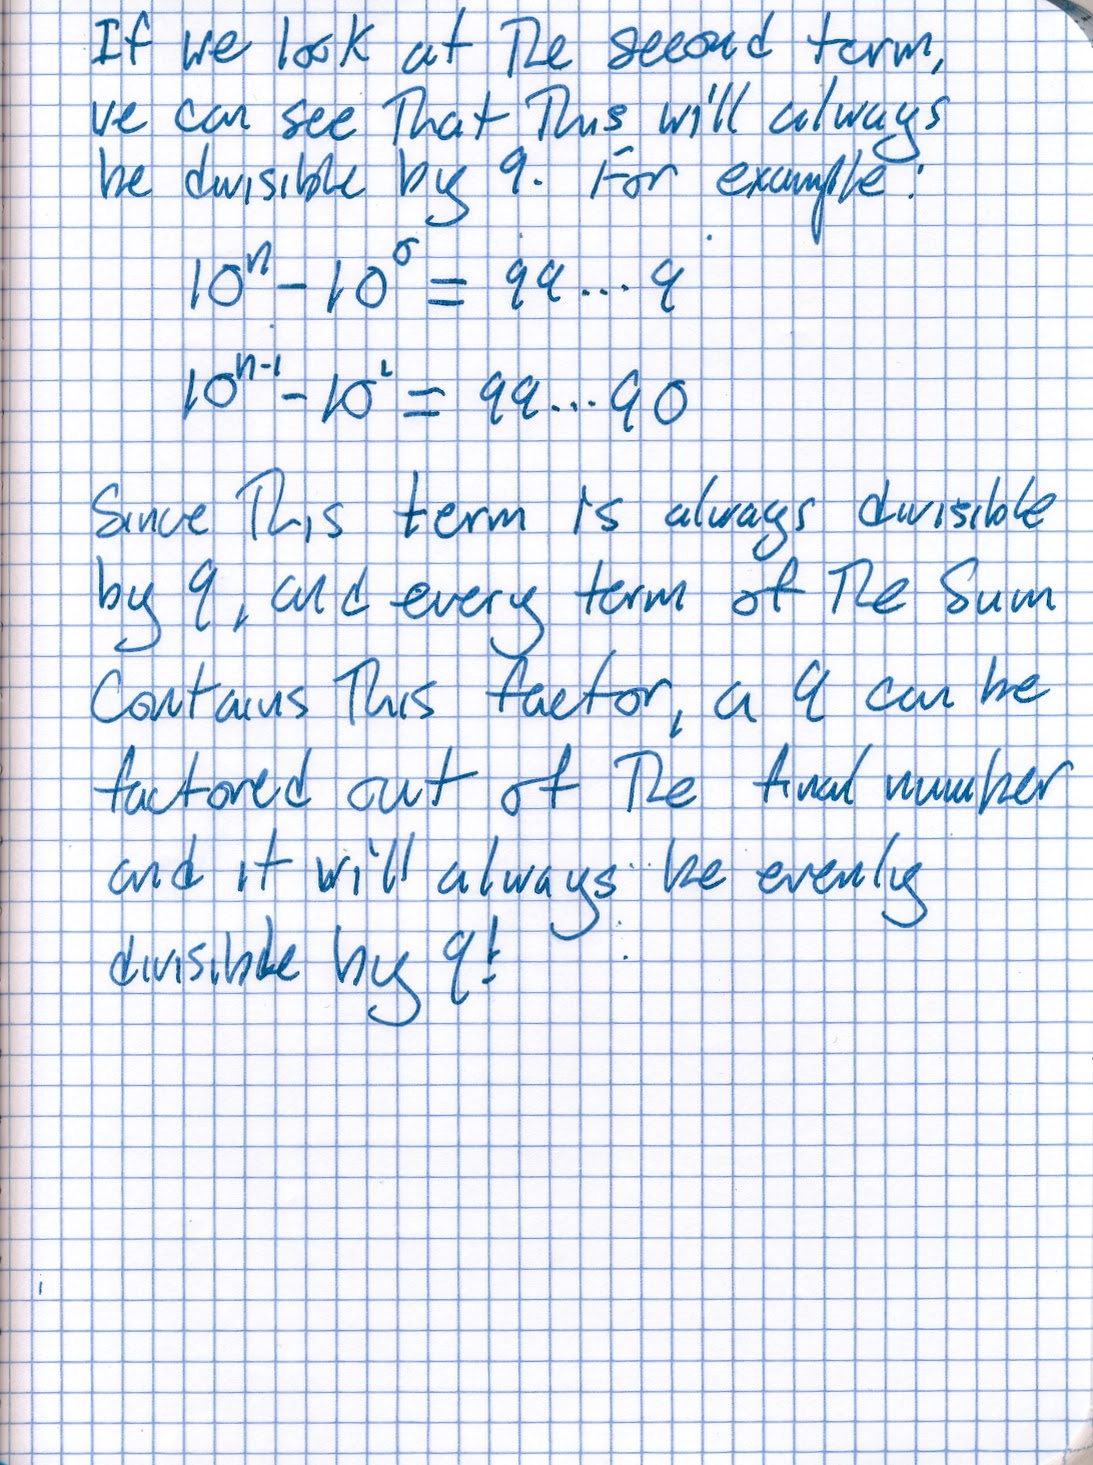 If we look at the second term,
we can see that this will always
be divisible by 9. For example:
10ⁿ - 10⁰ = 99...9
10ⁿ⁻¹ - 10¹ = 99...90
Since this term is always divisible
by 9, and every term of the sum
contains this factor, a 9 can be
factored out of the final number
and it will always be evenly
divisible by 9!